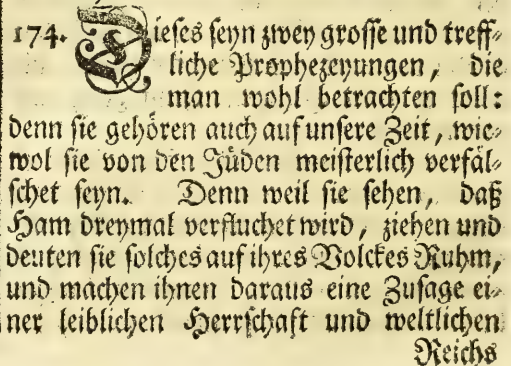 174. Dieses seyn zwey grosse und treff-
liche Prophezeyungen, die
man wohl betrachten soll:
denn sie gehören auch auf unsere Zeit, wie-
wol sie von den Jüden meisterlich verfäl-
schet seyn. Denn weil sie sehen, daß
Ham dreymal verfluchet wird, ziehen und
deuten sie solches auf ihres Volckes Ruhm,
und machen ihnen daraus eine Zusage ei-
ner leiblichen Herrschaft und weltlichen
Reichs